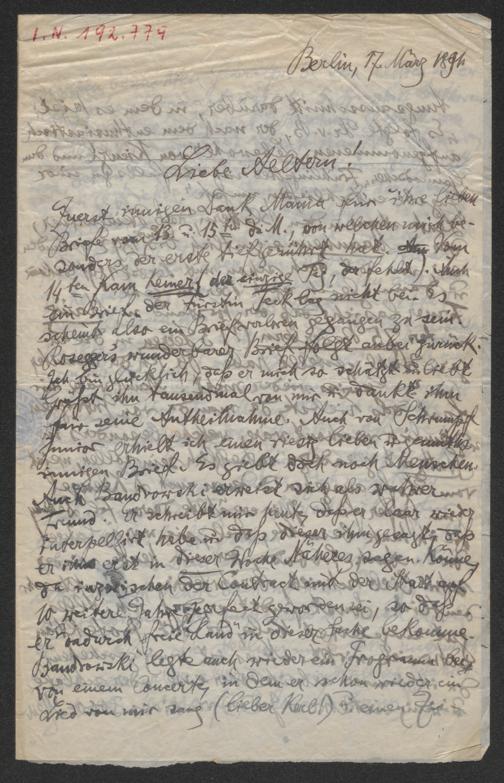 I.N. 192.779
Berlin, 17. März 1894
Liebe Aeltern!
Zuerst innigen Dank Mama für ihre lieben
Briefe vom 13. u. 15ten d. M., von welchen mich be-
sonders der erste tief gerührt hat. Vom
14ten kam keiner, der einzige Tag, der fehlt. Auch
ein Brief der Fürstin lag nicht bei. Es
scheint also ein Brief verloren gegangen zu sein.
Rosegger's wunderbarer Brief folgt anbei zurück.
Ich bin glücklich, daß er mich so schätzt u. liebt
grüßt ihn tausendmal von mir u. dankt ihm
für seine Antheilnahme. Auch von
junior erhielt ich einen riesig lieben u.
innigen Brief. Es giebt doch noch Menschen.
Auch Bandrowski erweist sich als wahrer
Freund. Er schreibt mir heute, daß er Claar wieder
interpellirt habe u. daß dieser ihm gesagt, daß
er erst in dieser Woche Näheres sagen könne,
da inzwischen der Contract mit der Stadt auf
10 weitere Jahre perfect geworden sei, so daß
er dadurch freie Hand in dieser Sache bekomme.
Bandrowski legte auch wieder ein Programm bei
von einem Concerte, in dem er schon wieder ein
Lied von mir sang (lieber ) u. einen Zei-